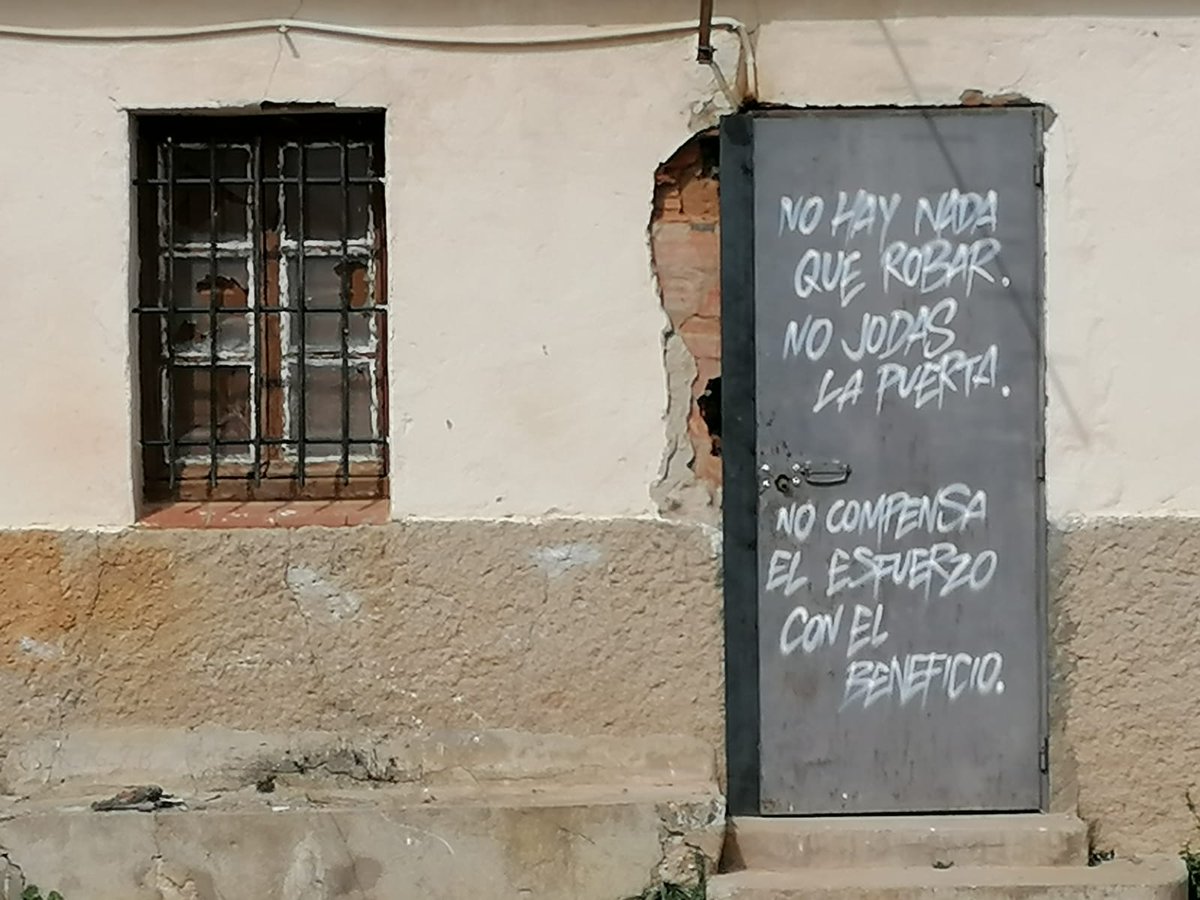 NO HAY NADA
QUE ROBAR.
NO JODAS
LA PUERTA.
NO COMPENSA
EL ESFUERZO
CON EL
BENEFICIO.